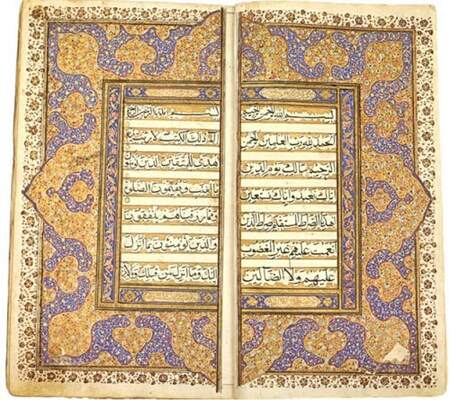 بسم الله الرحمن الرحيم
الحمد لله رب العلمين الرحمن
الرحيم مالك يوم الدين
اياك نعبد واياك نستعين
اهدنا الصراط المستقيم صراط الذين
انعمت عليهم غير المغضوب
عليهم ولا الضالين
بسم الله الرحمن الرحيم
الم ذلك الكتب لا ريب فيه
هدى للمتقين الذين يؤمنون
بالغيب ويقيمون الصلوة
ومما رزقناهم ينفقون
والذين يؤمنون بما انزل
اليك وما انزل من قبلك وبالا